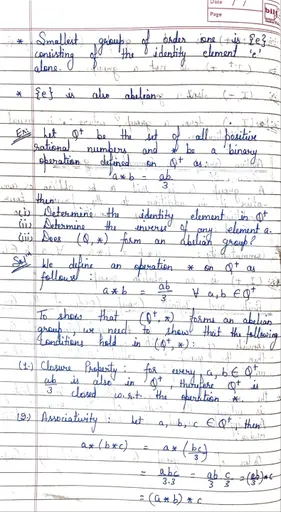 Date
Page
* Smallest group of order one is {e}
consisting of the identity element 'e'
alone.
* {e} is also abelian.
Ex: Let Q⁺ be the set of all positive
rational numbers and * be a binary
operation defined on Q⁺ as:
a*b = ab/3
then:
(i) Determine the identity element in Q⁺
(ii) Determine the inverse of any element a.
(iii) Does (Q,*) form an abelian group?
Sol: We define an operation * on Q⁺ as
follows:
a*b = ab/3 ∀ a,b ∈ Q⁺
To show that (Q⁺,*) forms an abelian
group, we need to show that the following
conditions hold in (Q⁺,*):
(1.) Closure Property: for every a,b ∈ Q⁺,
ab/3 is also in Q⁺, therefore Q⁺ is
closed w.r.t. the operation *.
(2.) Associativity: Let a, b, c ∈ Q⁺, then
a*(b*c) = a*(bc/3)
= abc/3.3 = ab/3 c/3 = (ab/3)*c
= (a*b)*c